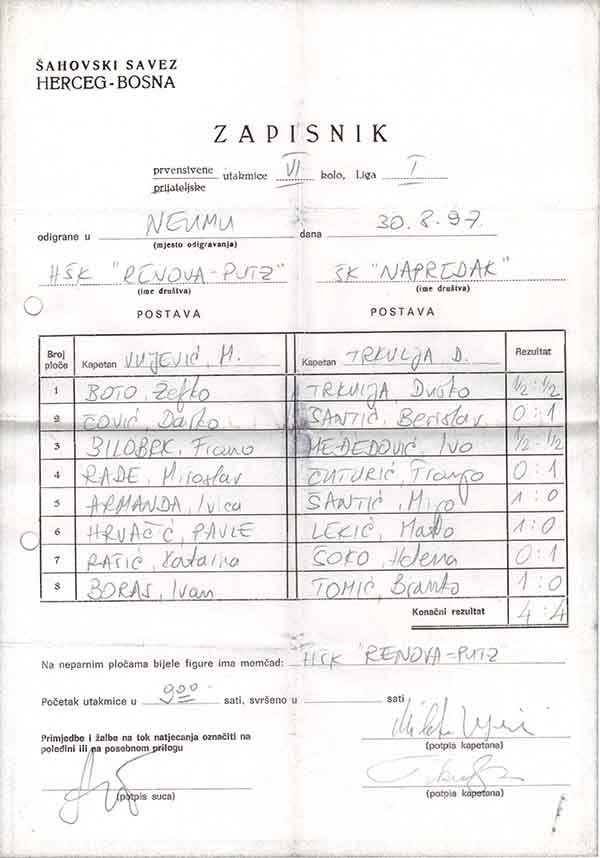 ŠAHOVSKI SAVEZ
HERCEG-BOSNA
ZAPISNIK
prvenstvene
prijateljske
utakmice VI kolo, Liga I
odigrane u NEUMU dana 30.8.97.
(mjesto odigravanja)
HŠK "RENOVA-PUTZ" ŠK "NAPREDAK"
(ime društva) (ime društva)
POSTAVA POSTAVA
Broj ploče Kapetan VUJEVIĆ, M. Kapetan TRKULJA D. Rezultat
1 BOTO, Željko TRKULJA, Duško 1/2 : 1/2
2 ČOVIĆ, Darko ŠANTIĆ, Berislav 0:1
3 BILOBRK, Frano MEĐEDOVIĆ, Ivo 1/2 - 1/2
4 RADE, Miroslav ČUTURIĆ, Franjo 0:1
5 ARMANDA, Ivica ŠANTIĆ, Miro 1:0
6 HRVAČIĆ, PAVLE LEKIĆ, Marko 1:0
7 RAŠIĆ, Katarina ŠOKO, Helena 0:1
8 BORAS, Ivan TOMIĆ, Branko 1:0
Konačni rezultat 4:4
Na neparnim pločama bijele figure ima momčad: HŠK "RENOVA-PUTZ"
Početak utakmice u 900 sati, svršeno u sati
Primjedbe i žalbe na tok natjecanja označiti na
poleđini ili na posebnom prilogu
(potpis kapetana)
(potpis suca) (potpis kapetana)